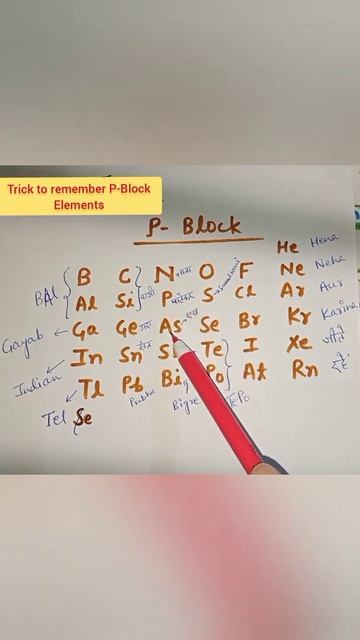 Trick to remember P-Block
Elements
P- Block
He Hena
BAl B C N O F Ne Neha
Al Si P S Cl Ar Aur
Gayab Ga Ge As Se Br Kr Karina
Indian In Sn Te I Xe
Tl Pb Bi Po At Rn
Tel Se Prabhu Bigre TePo